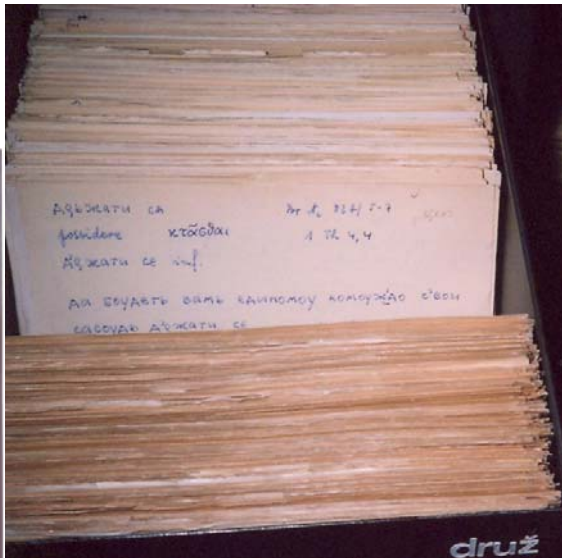 дрьжати сѧ
possidere κτᾶσθαι 1 Th 4,4
дръжати се inf.
да боудеть вамь единомоу комоуждо свои
сасоудь дръжати се
druž